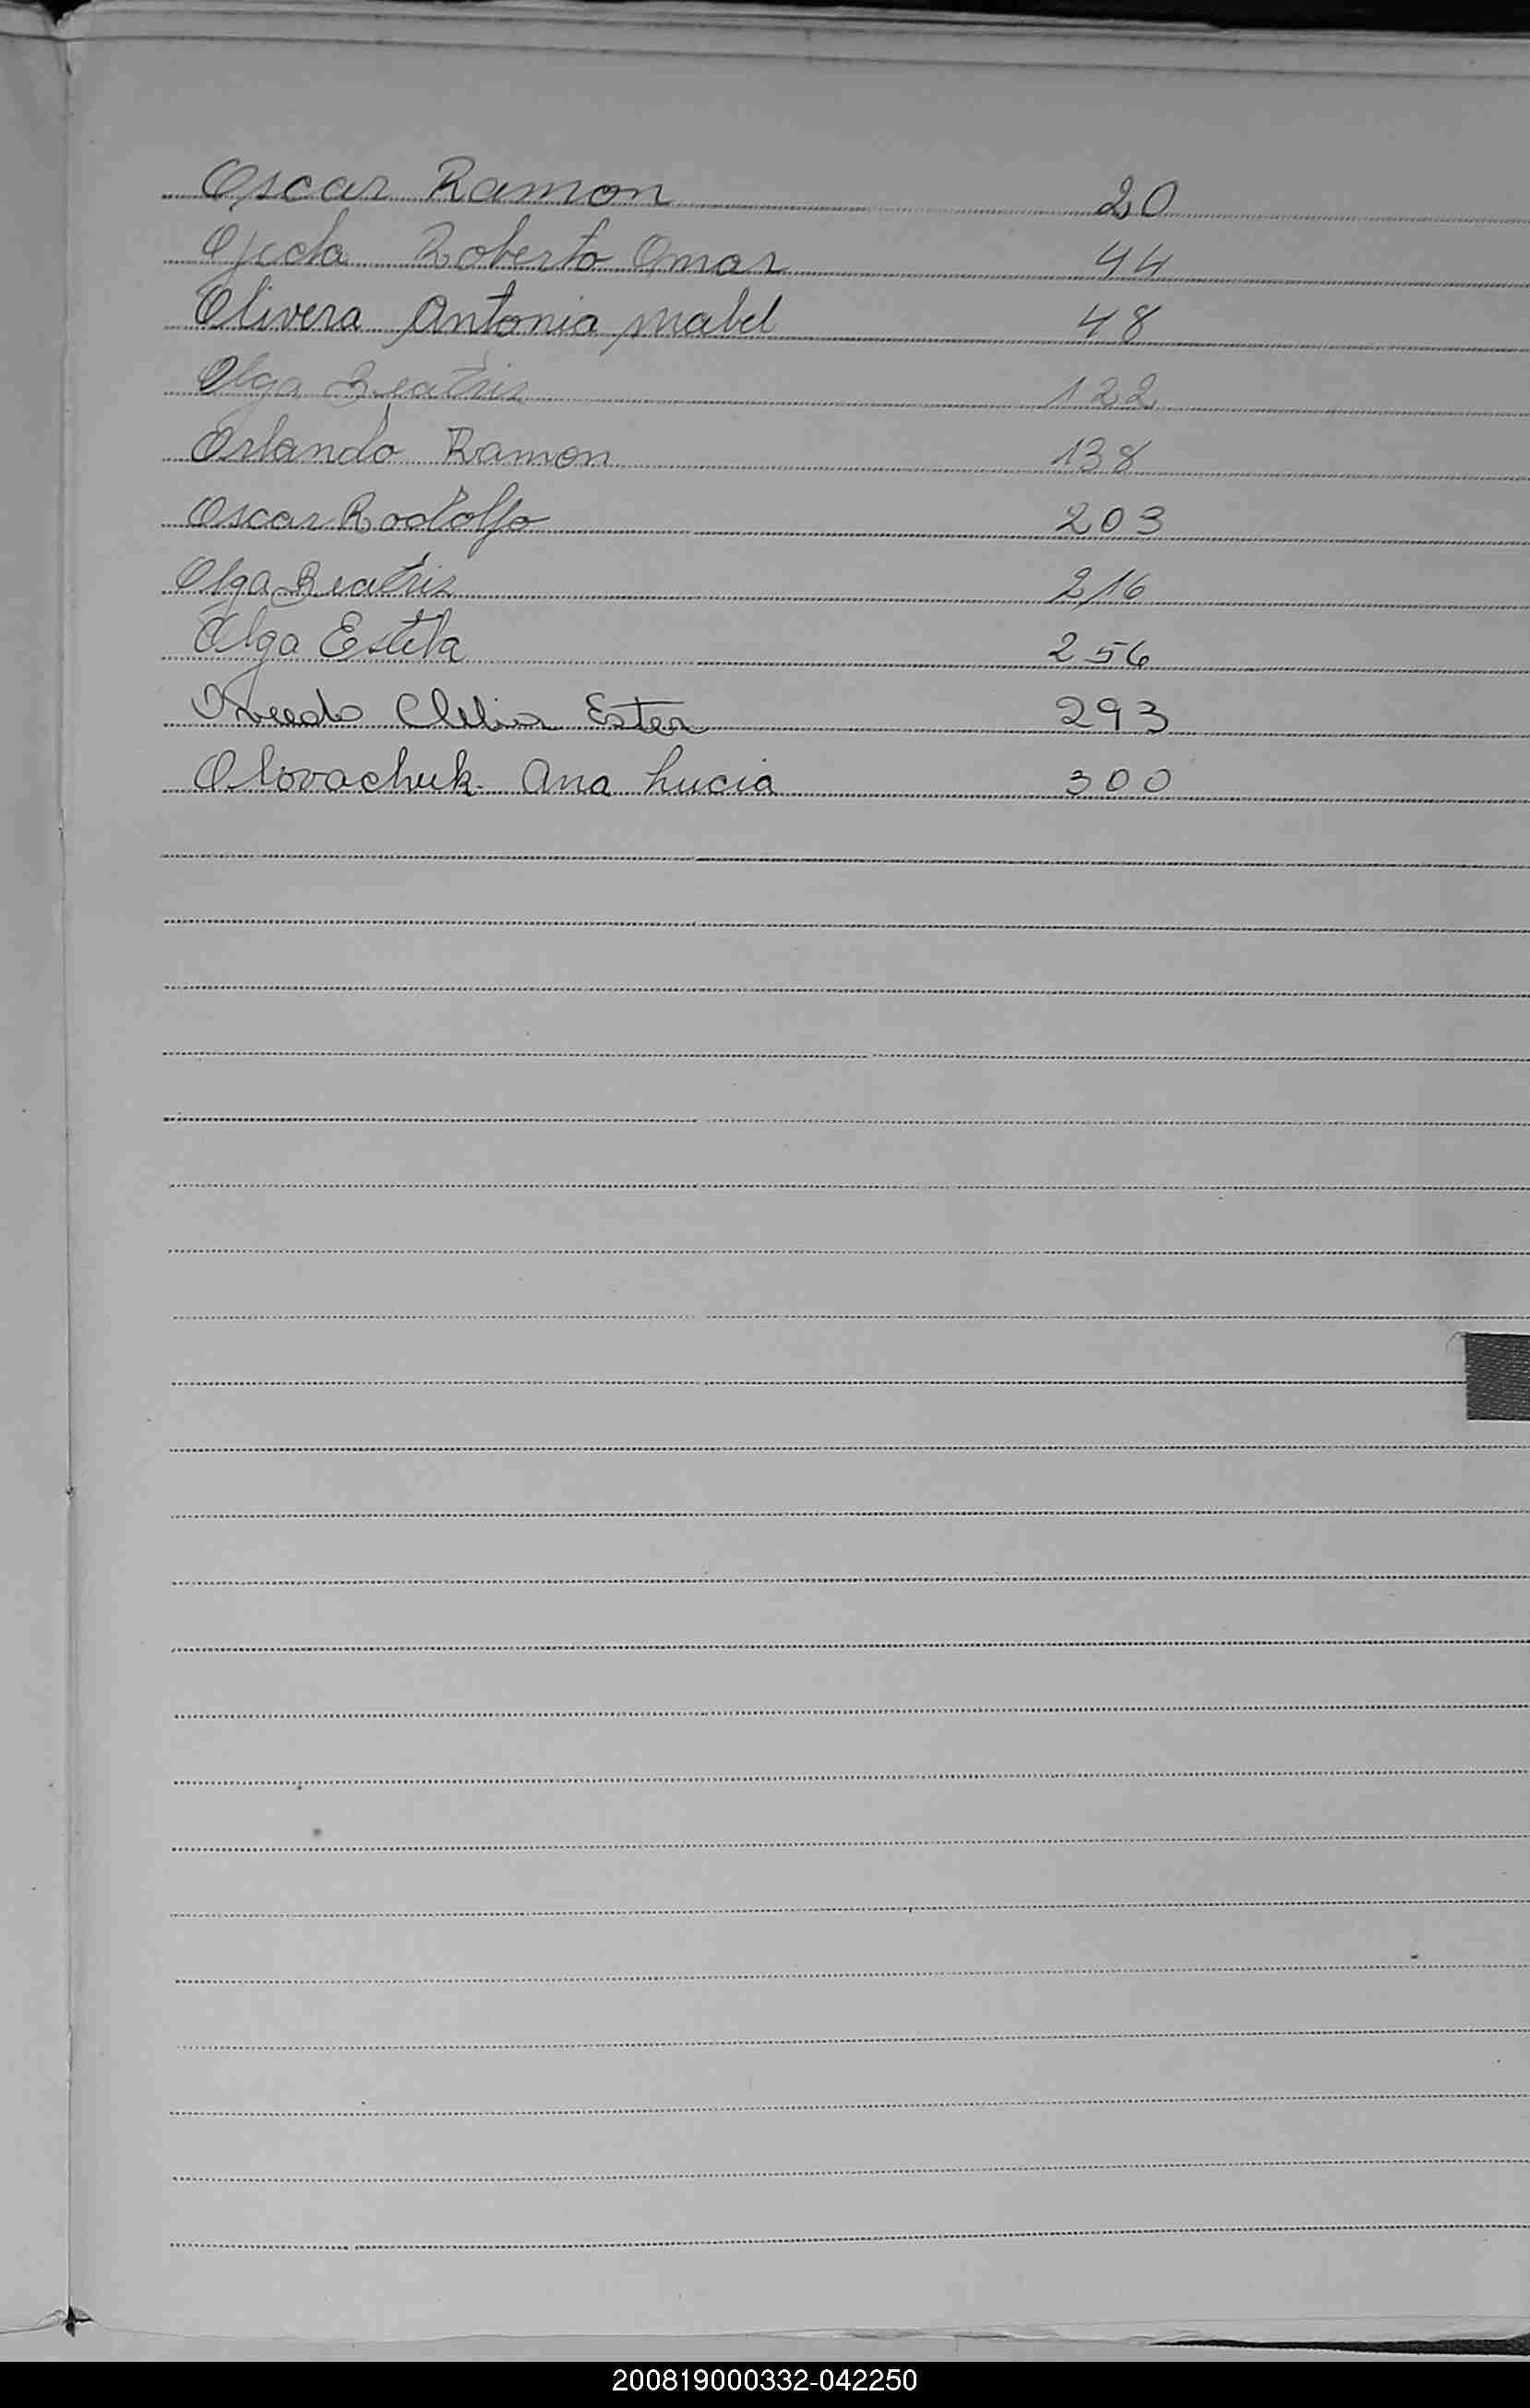 Oscar Ramon 20
Ojeda Roberto Omar 44
Olivera Antonia Mabel 48
Olga Beatris 122
Orlando Ramon 138
Oscar Rodolfo 203
Olga Beatris 216
Olga Estela 256
Oviedo Clelia Ester 293
Olovachuk Ana Lucia 300
200819000332-042250